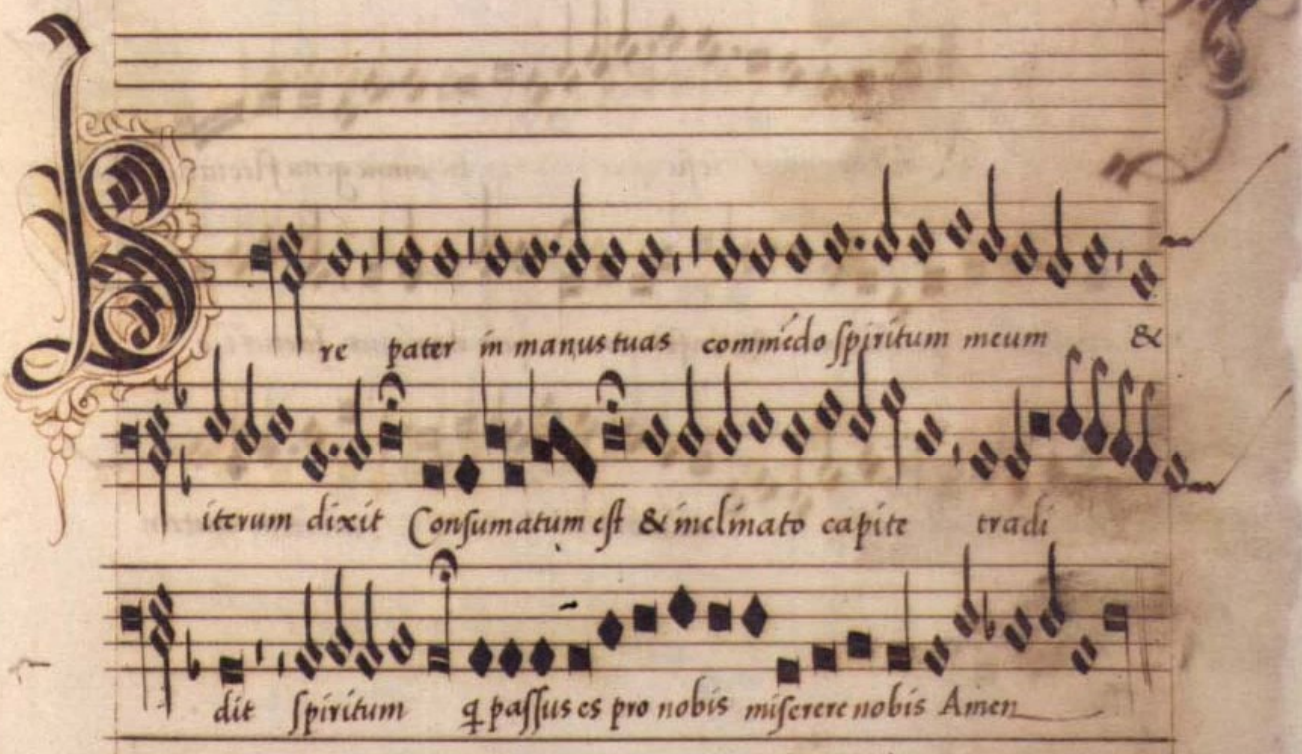 re pater in manus tuas commēdo spiritum meum &
iterum dixit Consumatum est & inclinato capite tradi
dit spiritum ꝗ passus es pro nobis miserere nobis Amen